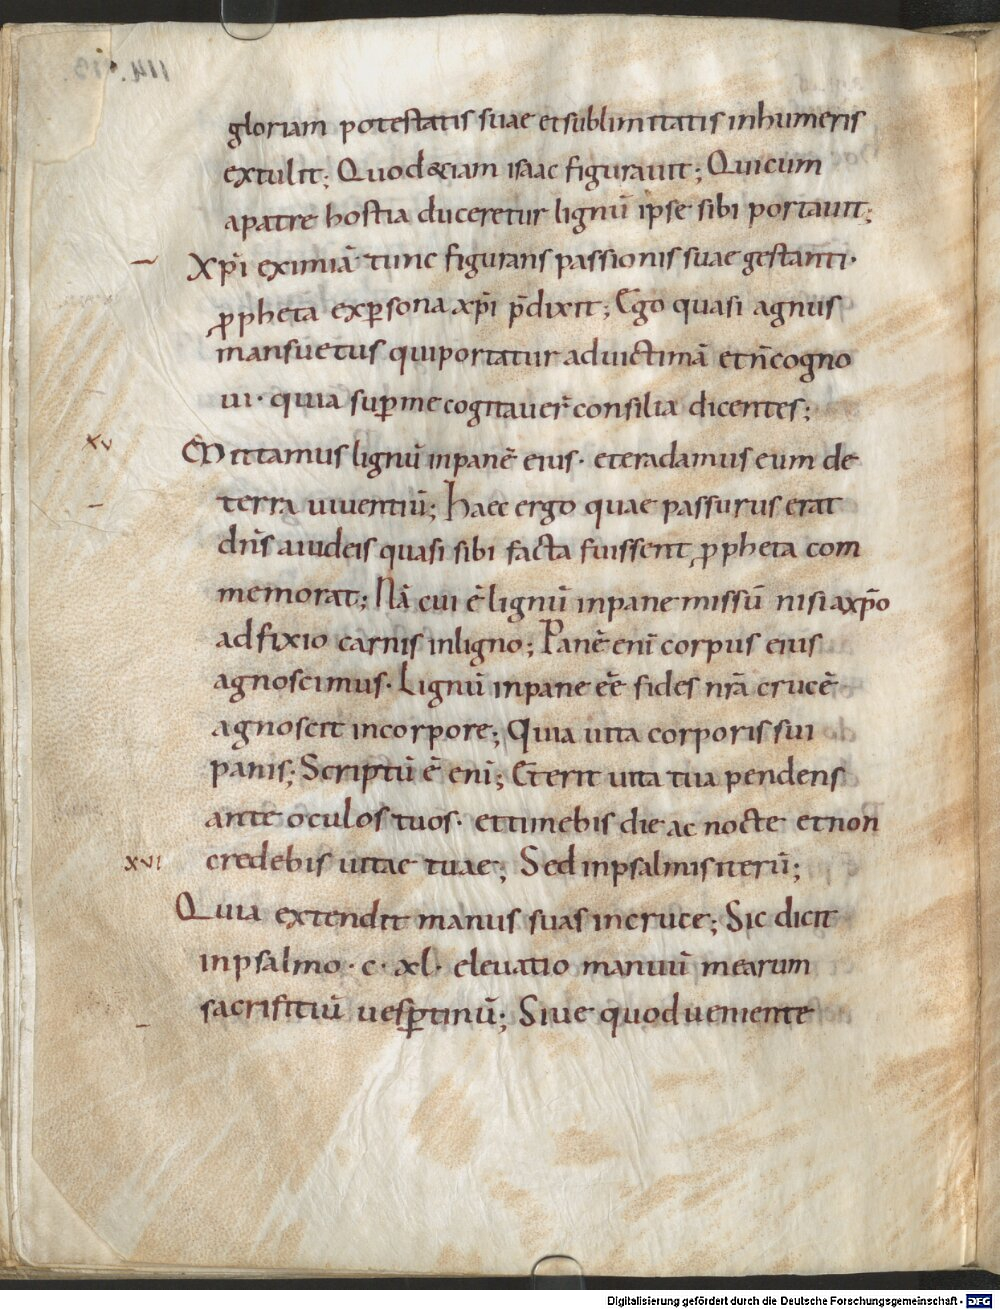 gloriam potestatis suae et sublimitatis in humeris
extulit; Quod &iam isaac figurauit; Qui cum
a patre hostia duceretur lignū ipse sibi portauit;
Xp̄i eximiā tunc figurans passionis suae gestanti·
ꝓpheta ex ꝑsona xp̄i p̄dixit; Ego quasi agnus
mansuetus qui portatur ad uictimā et n̄ cogno
ui· quia suꝑ me cogitauer̄ consilia dicentes;
xv
Mittamus lignū in panē eius· et eradamus eum de
terra uiuentiū; Haec ergo quae passurus erat
dn̄s a iudeis quasi sibi facta fuissent ꝓpheta com
memorat; Nā cui ē lignū in pane missū nisi a xp̄o
adfixio carnis in ligno; Panē enī corpus eius
agnoscimus· Lignū in pane eē fides nr̄a crucē
agnoscit in corpore; Quia uita corporis sui
panis; Scriptū ē enī; Et erit uita tua pendens
ante oculos tuos· et timebis die ac nocte et non
xvi
credebis uitae tuae; Sed in psalmis iterū;
Quia extendit manus suas in cruce; Sic dicit
in psalmo · c · xl· eleuatio manuū mearum
sacrifitiū uesꝑtinū; Siue quod ueniente
Digitalisierung gefördert durch die Deutsche Forschungsgemeinschaft - DFG